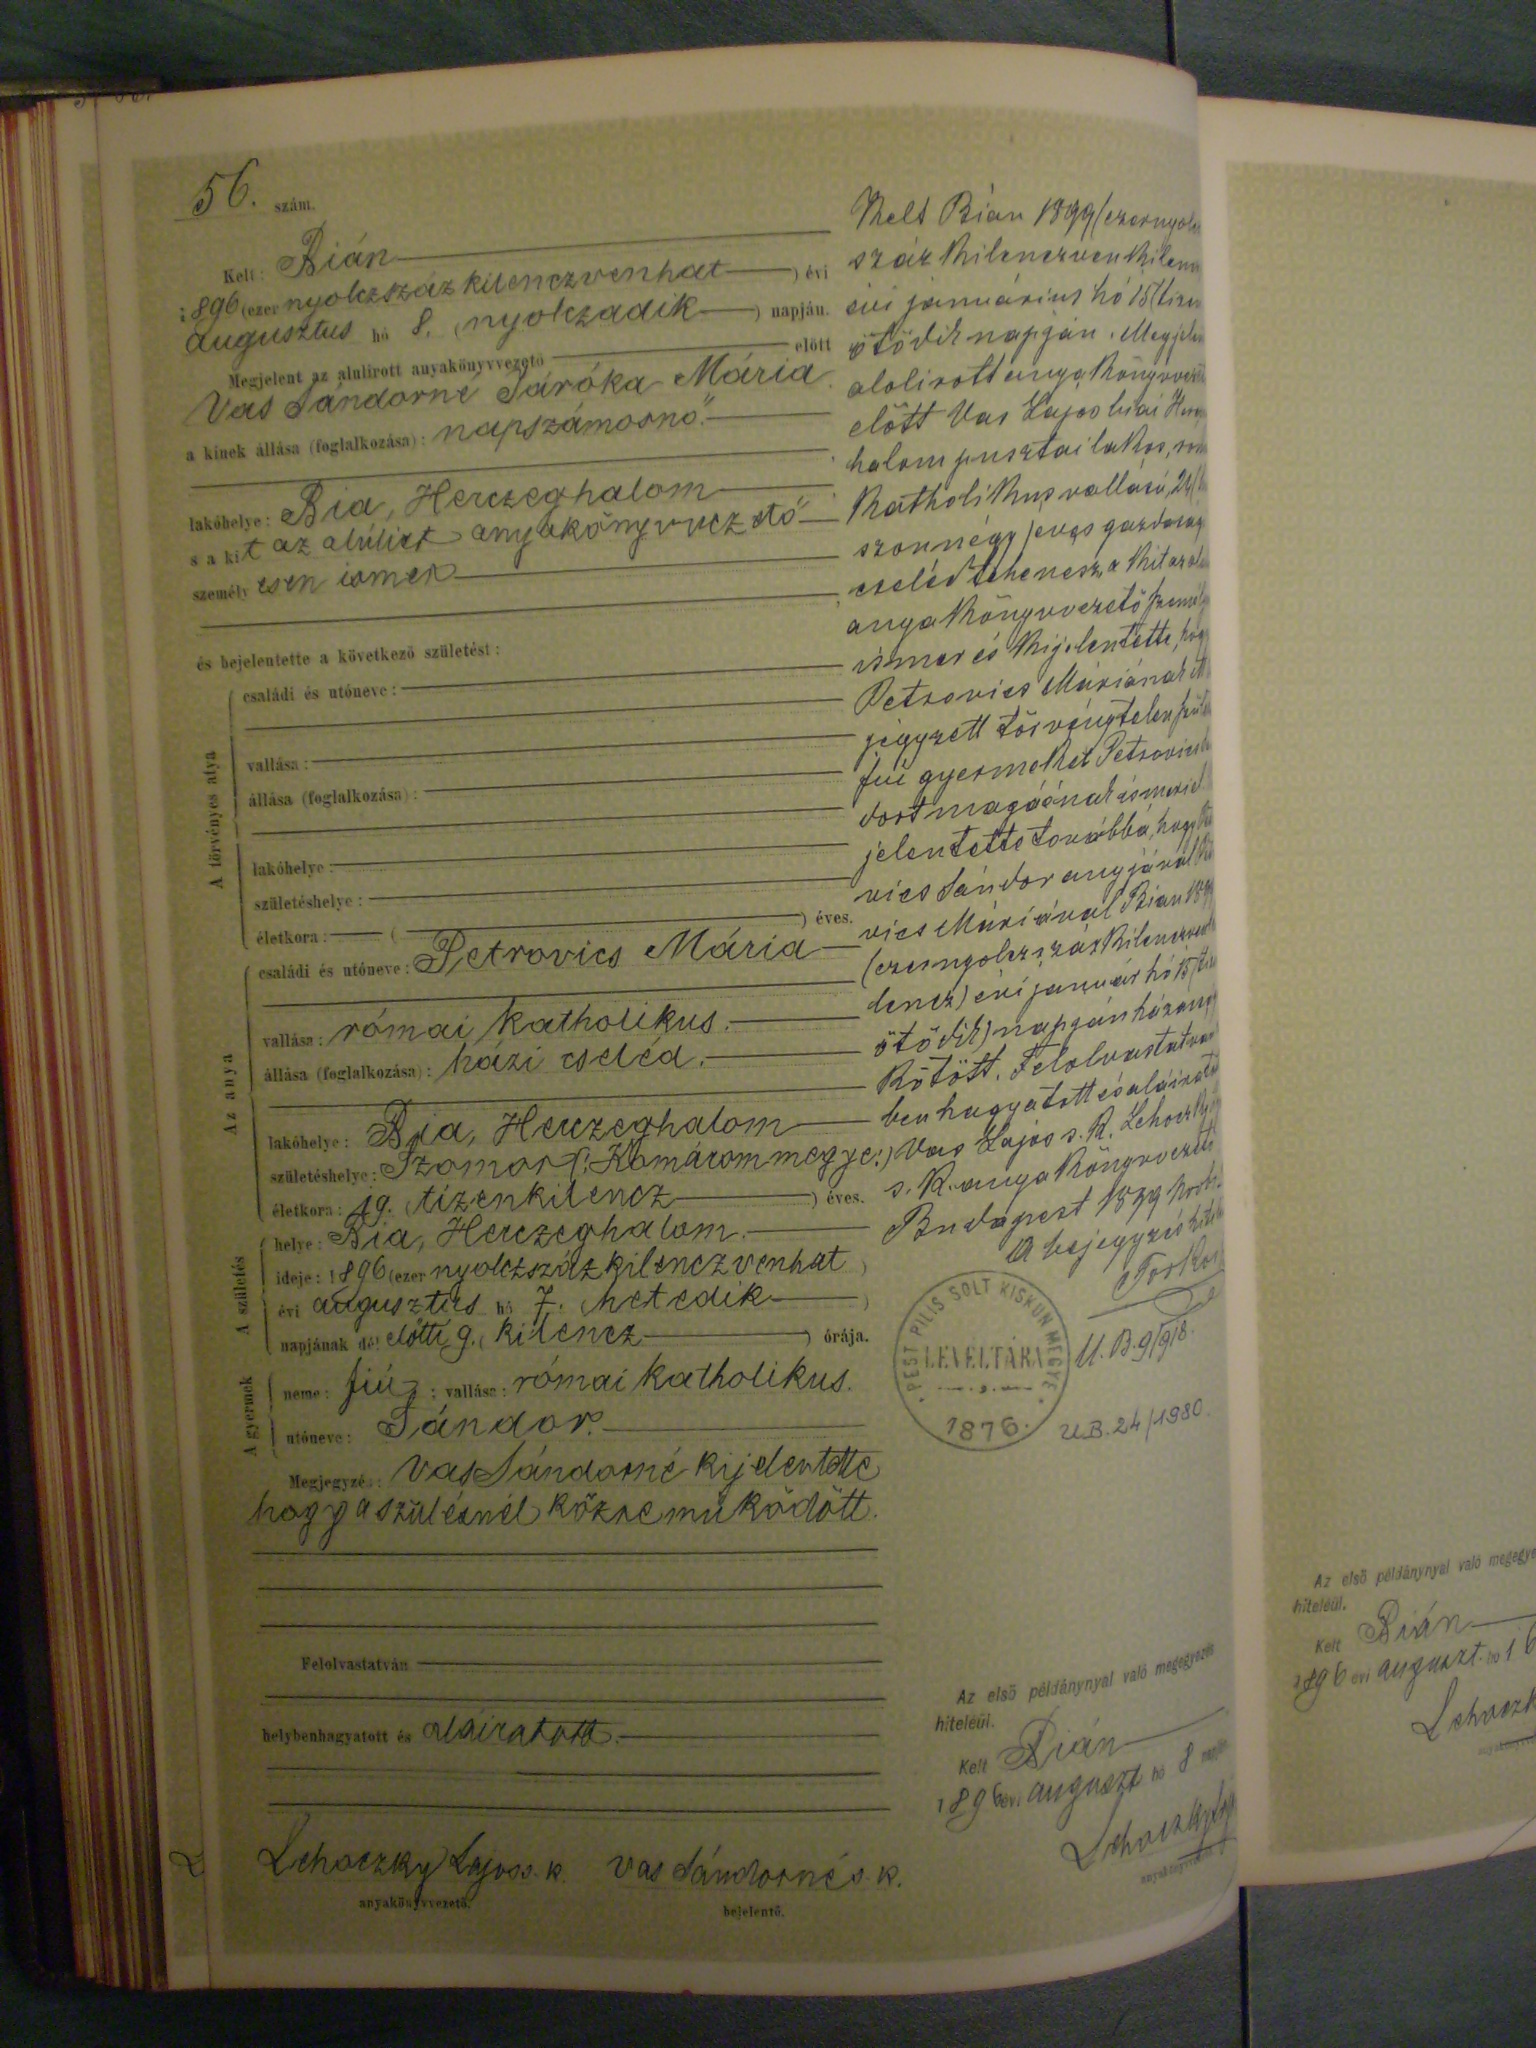 56. szám.
Kelt: Bián
1896 (ezer nyolczszázkilenczvenhat ) évi
augusztus hó 8. (nyolczadik ) napján.
Megjelent az alulirott anyakönyvvezető előtt
Vas Sándorné Sáróka Mária
a kinek állása (foglalkozása): napszámosnő.
lakóhelye: Bia, Herczeghalom
s a kit az alúlirt anyakönyvvezető
személyesen ismer
és bejelentette a következő születést:
A törvényes atya
családi és utóneve:
vallása:
állása (foglalkozása):
lakóhelye:
születéshelye:
életkora: ( ) éves.
Az anya
családi és utóneve: Petrovics Mária
vallása: római katholikus.
állása (foglalkozása): házi cseléd.
lakóhelye: Bia, Herczeghalom
születéshelye: Szomor (: Komárommegye :)
életkora: 19. (tizenkilencz ) éves.
A születés
helye: Bia, Herczeghalom.
ideje: 1896 (ezer nyolczszázkilenczvenhat )
évi augusztus hó 7. (hetedik )
napjának dél előtti 9. (kilencz ) órája.
A gyermek
neme: fiú ; vallása: római katholikus.
utóneve: Sándor.
Megjegyzés: Vas Sándorné kijelentette
hogy a szülésnél közreműködött.
Felolvastatván
helybenhagyatott és aláiratott.
Lehoczky Lajos s. k. Vas Sándorné s. k.
anyakönyvvezető. bejelentő.
Kelt Bián 1899 (ezernyolcz
száz kilenczven kilencz
évi januárius hó 15 (tizen
ötödik napján. Megjelent
alolirott anyakönyvvezető
előtt Vas Lajos biai
halom pusztai lakos,
katholikus vallású, 24
szonnégy) éves gazdasági
cseléd tehenész, a kit az
anyakönyvvezető
ismer és kijelentette, hogy
Petrovics Máriának itt
jegyzett törvénytelen
fiú gyermekét Petrovics
dort magáénak ismeri el
jelentette továbbá, hogy
vics Sándor anyjával
vics Máriával Bián 1899
(ezernyolczszáz kilenczven
lencz) évi január hó 15
ötödik) napján házasságot
kötött. Felolvastatván
benhagyatott és aláiratott
Vas Lajos s. k. Lehoczky
s. k. anyakönyvvezető
Budapest 1899
A bejegyzés
PEST PILIS SOLT KISKUN MEGYE
LEVÉLTÁRA
1876.
U.B. 24/1980.
Az első példánynyal való megegyezés
hiteléül.
Kelt Bián
1896 évi auguszt hó 8
Lehoczky
Az első példánynyal való
hiteléül.
Kelt Bián
1896 évi auguszt. hó